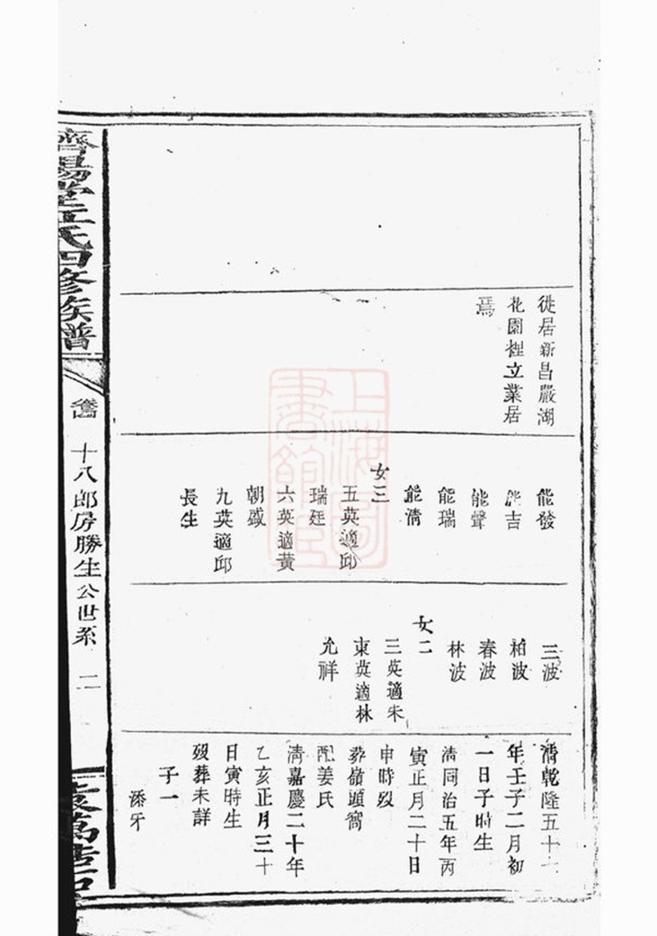 徙居新昌嚴湖
花園裡立業居
焉
能發
能吉
能聲
能瑞
能清
女三
五英適邱
瑞廷
六英適黃
朝盛
九英適邱
長生
三波
柏波
春波
林波
女二
三英適朱
東英適林
允祥
清乾隆五十七
年壬子二月初
一日子時生
清同治五年丙
寅正月二十日
申時歿
葬嶺頭窩
配姜氏
清嘉慶二十年
乙亥正月三十
日寅時生
歿葬未詳
子一
添牙
濟陽堂江氏四修族譜
十八郎房勝生公世系
二
上海圖書館藏